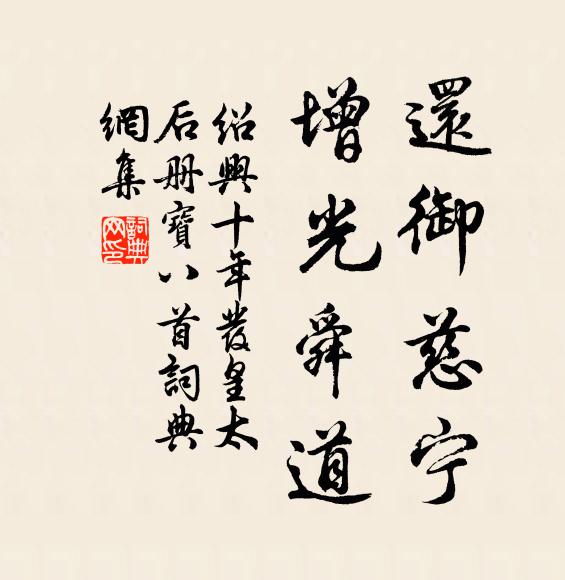 還御慈宁
增光舜道
紹興十年發皇太
后册寶八首詞典
網集
詞典网印